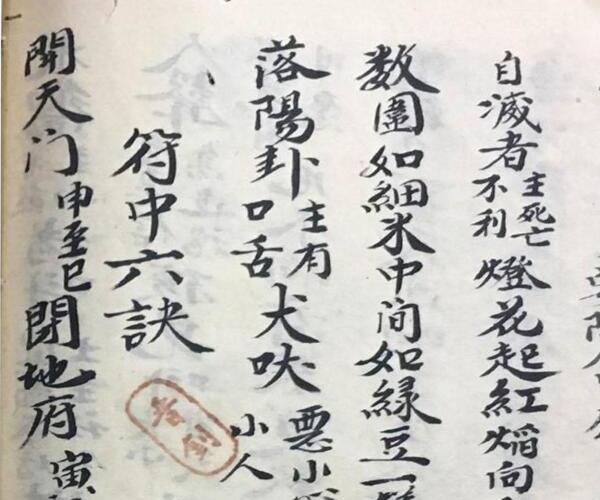 自滅者主死亡不利燈花起紅焰向
数圍如細米中间如緑豆一
落陽卦主有口舌犬吠惡小小人
符中六訣
開天门申至巳閉地府寅